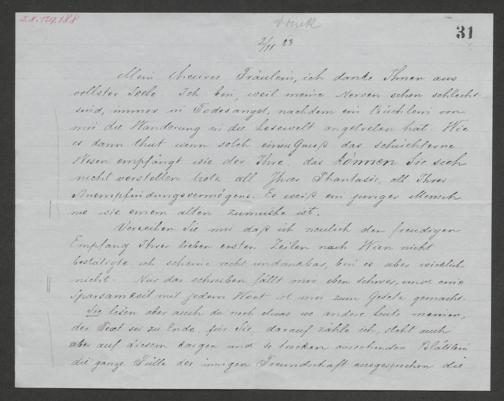 I.N. 124.188
Druck
31
2/11 93
Mein theures Fräulein, ich danke Ihnen aus
vollster Seele. Ich bin, weil meine Nerven schon schlecht
sind, immer in Todesangst, nachdem ein Büchlein von
mir die Wanderung in die Lesewelt angetreten hat. Wie
es dann thut wenn solch ein Gruß das schüchterne
Wesen empfängt wie der Ihre, das können Sie sich
nicht vorstellen trotz all Ihrer Phantasie, all Ihres
Anempfindungsvermögens. Es weiß ein junger Mensch
nie wie einem alten zumuthe ist.
Verzeihen Sie mir daß ich neulich den freudigen
Empfang Ihrer lieben ersten Zeilen nach Wien nicht
bestätigte ich scheine recht undankbar, bin es aber wirklich
nicht. Nur das schreiben fällt mir eben schwer, und eine
Sparsamkeit mit jedem Wort ist mir zum Gesetz gemacht.
Sie lesen aber auch da noch etwas wo andere Leute meinen,
der Text sei zu Ende, für Sie, darauf zähle ich, steht auch
auf diesem kargen und so trocken aussehenden Blättlein
die ganze Fülle der innigen Freundschaft ausgesprochen die